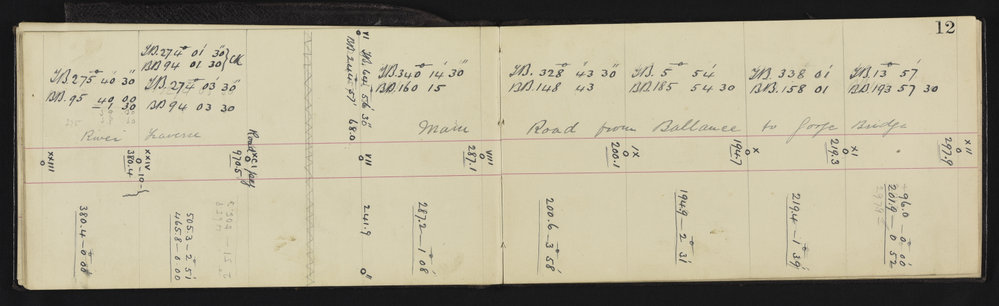 12
F.B. 274° 01' 30" } CK
B.B. 94 01 30
F.B. 275° 40' 30"
B.B. 95 40 00
F.B. 274° 03' 30"
B.B. 94 03 30
River Traverse
VI
680
F.B. 340° 14' 30"
B.B. 160 15
F.B. 328° 43' 30"
B.B. 148 43
F.B. 5° 54'
B.B. 185 54 30
F.B. 338° 01'
B.B. 158 01
F.B. 13° 57'
B.B. 193 57 30
Main Road from Ballance to Gorge Bridge
XXIII
XXIV
380.4
Road XXI peg
970.5
VII
VIII
287.1
IX
200.1
X
194.7
XI
219.3
XII
297.9
380.4 – 0° 08'
505.3 – 2° 51'
465.8 – 0 00
241.9 0
287.2 – 1° 08'
200.6 – 3° 58'
194.9 – 2° 31'
219.4 – 1° 39'
+96.0 – 0° 00'
201.9 – 0 52